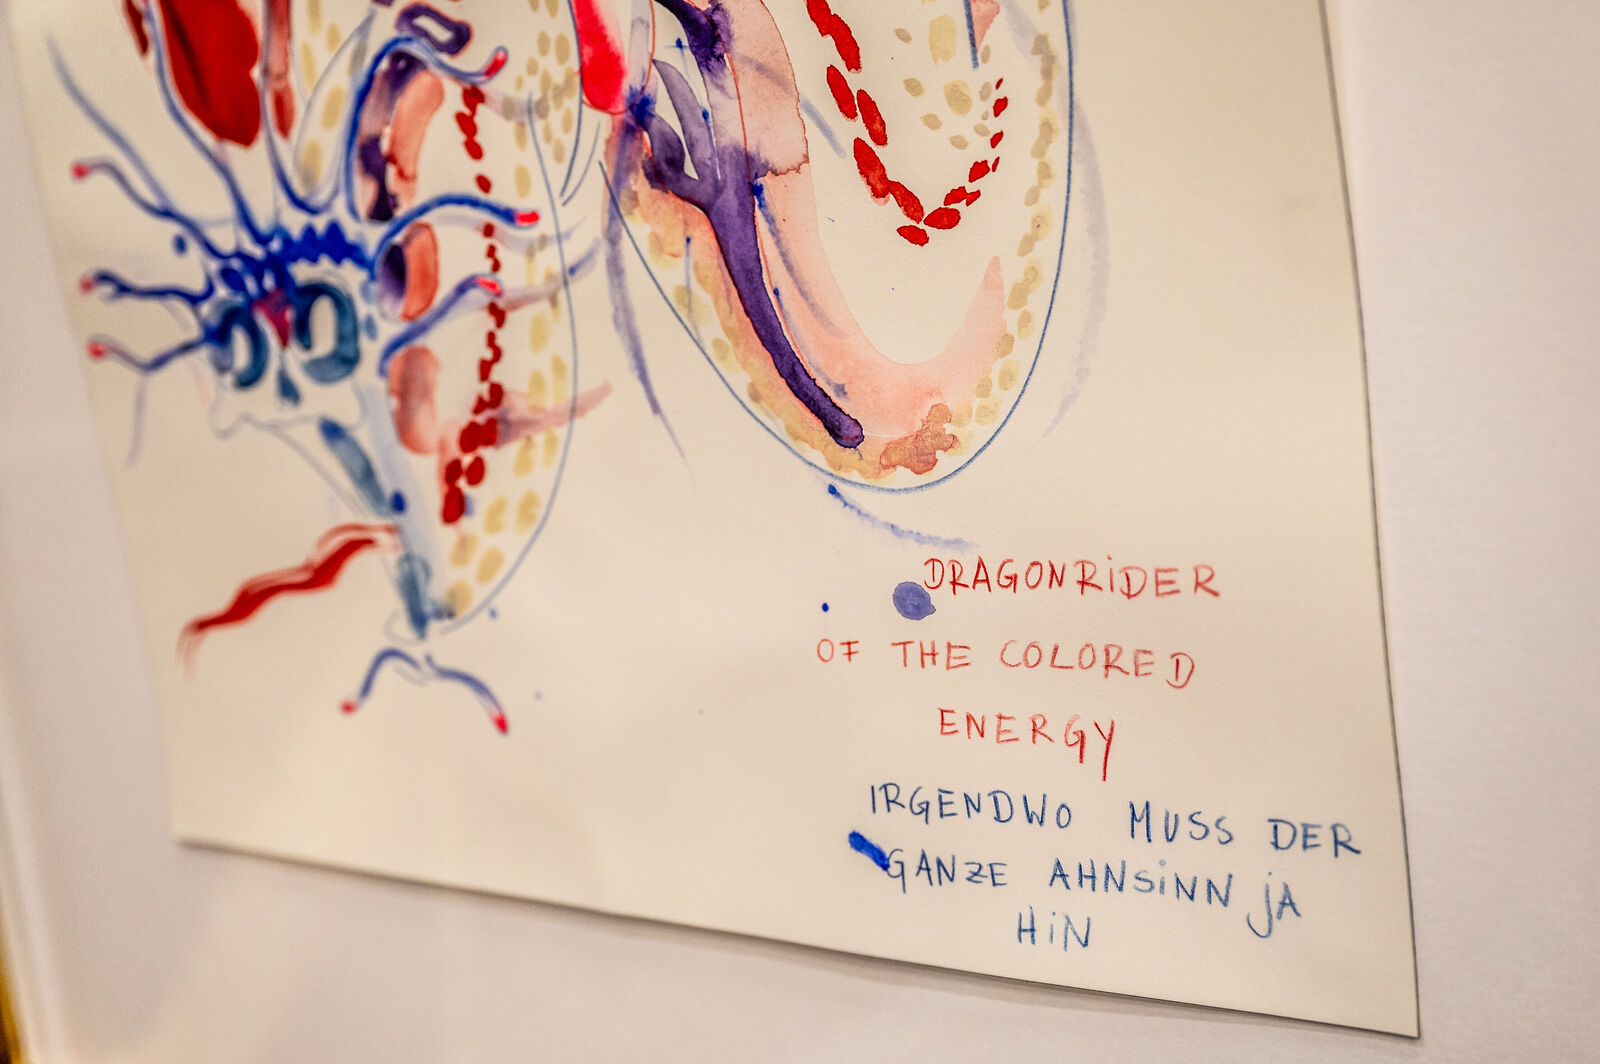 DRAGONRiDER
OF THE COLORED
ENERGY
IRGENDWO MUSS DER
GANZE AHNSiNN jA
HiN